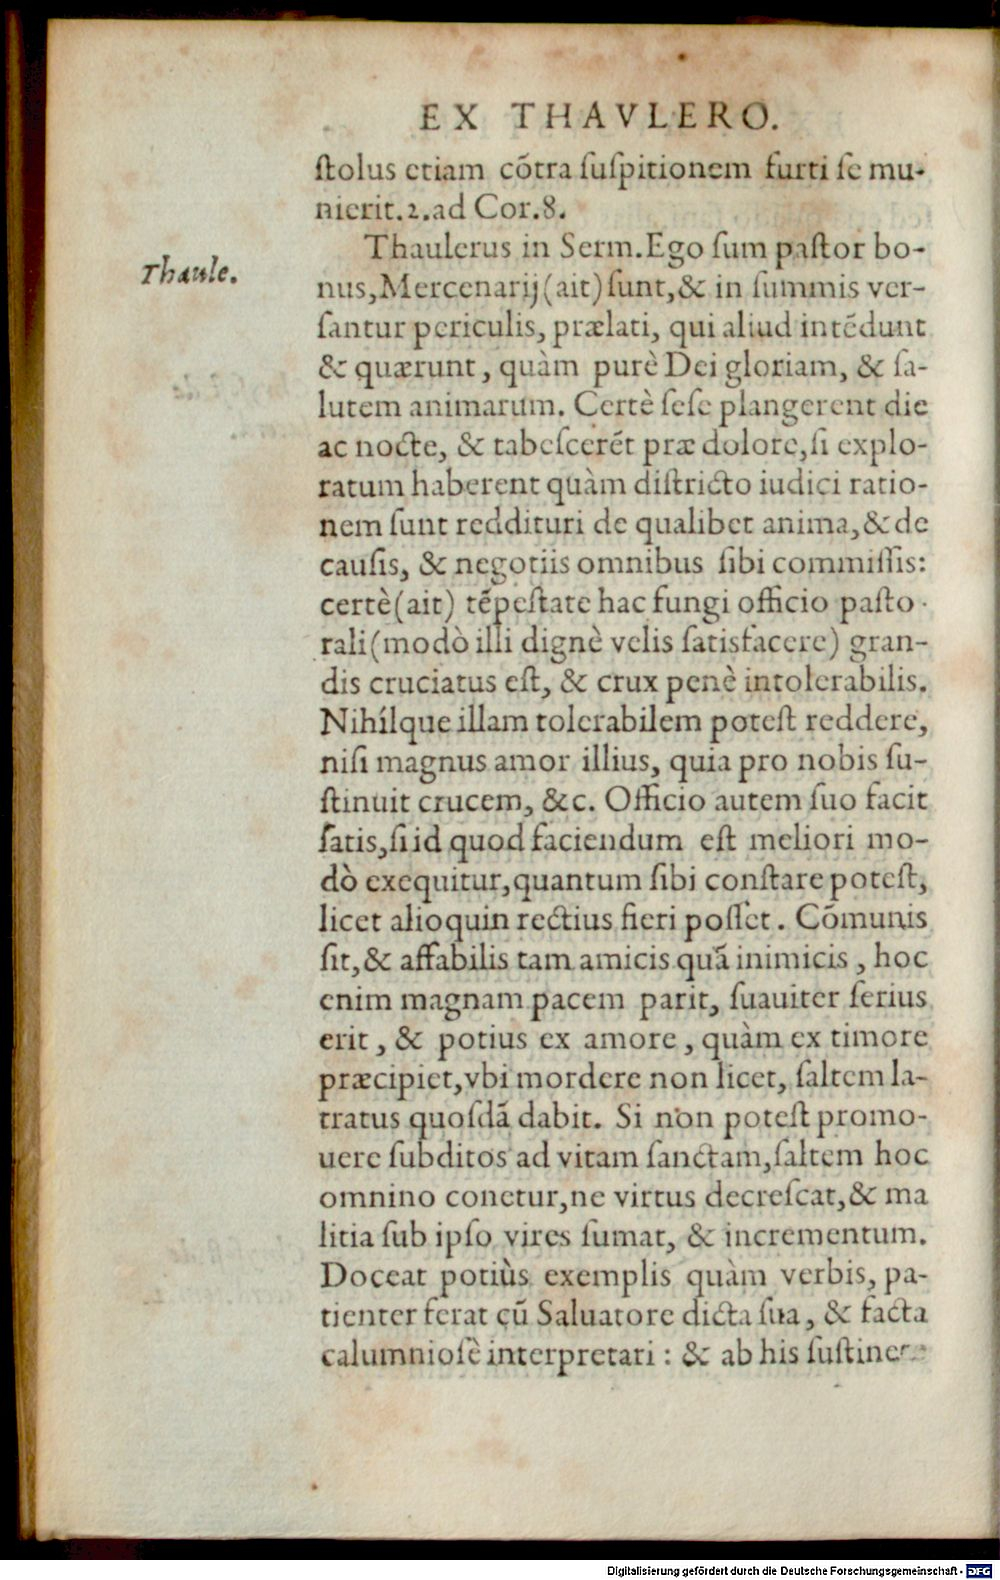 EX THAVLERO.
ſtolus etiam cōtra ſuſpitionem furti ſe mu-
nierit.2.ad Cor.8.
Thaule.
Thaulerus in Serm.Ego ſum paſtor bo-
nus,Mercenarij(ait)ſunt,& in ſummis ver-
ſantur periculis, prælati, qui aliud intēdunt
& quærunt, quàm purè Dei gloriam, & ſa-
lutem animarum. Certè ſeſe plangerent die
ac nocte, & tabeſcerēt præ dolore,ſi explo-
ratum haberent quàm diſtricto iudici ratio-
nem ſunt reddituri de qualibet anima,& de
cauſis, & negotiis omnibus ſibi commiſſis:
certè(ait) tēpeſtate hac fungi officio paſto-
rali(modò illi dignè velis ſatisfacere) gran-
dis cruciatus eſt, & crux penè intolerabilis.
Nihílque illam tolerabilem poteſt reddere,
niſi magnus amor illius, quia pro nobis ſu-
ſtinuit crucem, &c. Officio autem ſuo facit
ſatis,ſi id quod faciendum eſt meliori mo-
dò exequitur,quantum ſibi conſtare poteſt,
licet alioquin rectius fieri poſſet. Cōmunis
ſit,& affabilis tam amicis quā inimicis, hoc
enim magnam pacem parit, ſuauiter ſerius
erit, & potius ex amore, quàm ex timore
præcipiet,vbi mordere non licet, ſaltem la-
tratus quoſdā dabit. Si non poteſt promo-
uere ſubditos ad vitam ſanctam,ſaltem hoc
omnino conetur,ne virtus decreſcat,& ma
litia ſub ipſo vires ſumat, & incrementum.
Doceat potiùs exemplis quàm verbis, pa-
tienter ferat cū Saluatore dicta ſua, & facta
calumnioſè interpretari: & ab his ſuſtinere
Digitalisierung gefördert durch die Deutsche Forschungsgemeinschaft - DFG